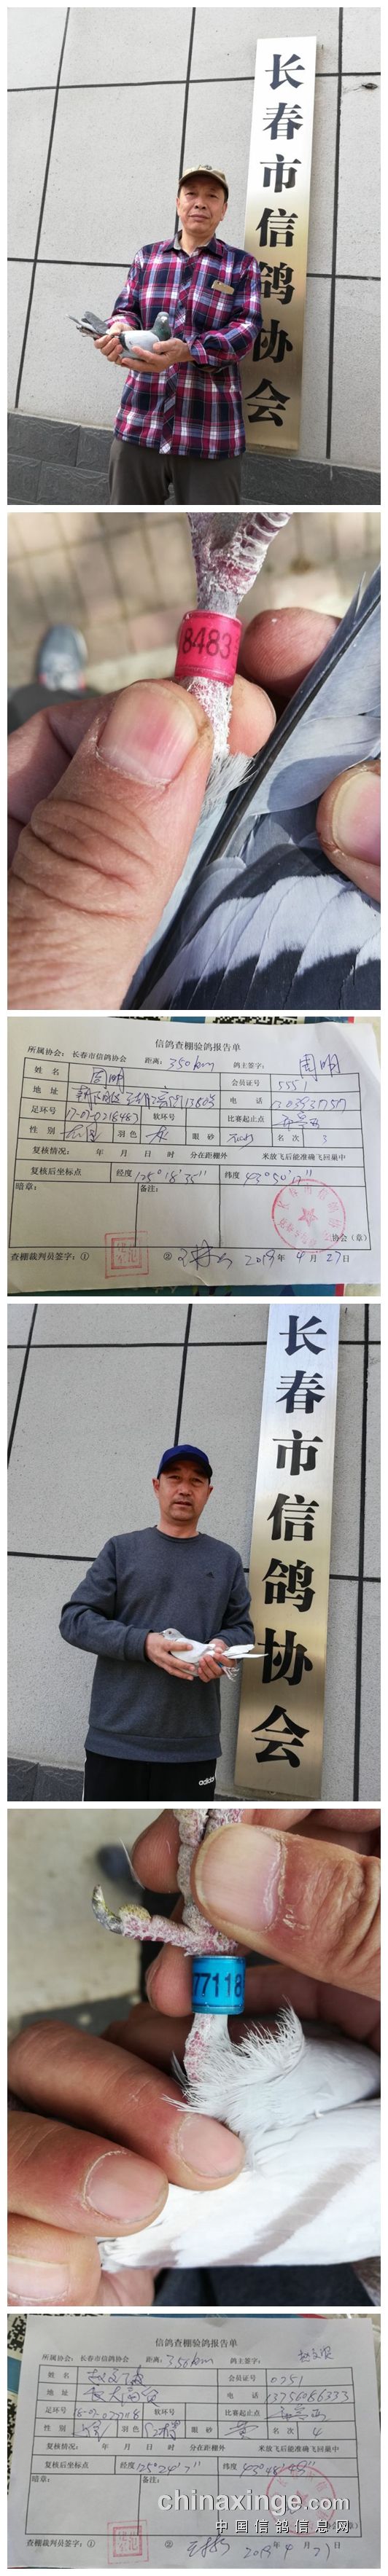 长春市信鸽协会
8483
信鸽查棚验鸽报告单
所属协会: 长春市信鸽协会 距离: 350km 鸽主签字: 周明
姓 名 周明 会员证号 5551
地 址 电 话
足环号 17-07-0218483 软环号 比赛起止点
性 别 羽色 灰 眼 砂 名 次 3
复核情况: 年 月 日 时 分在距棚外 米放飞后能准确飞回巢中
复核后坐标点 经度 125°18′35″ 纬度 43°50′17″
暗章: 备注:
协会(章)
查棚裁判员签字: ① ② 2019年 4月 27日
长春市信鸽协会
77118
信鸽查棚验鸽报告单
所属协会: 长春市信鸽协会 距离: 鸽主签字:
姓 名 会员证号 0751
地 址 电 话 13756086333
足环号 软环号 比赛起止点
性 别 羽色 眼 砂 黄 名 次 4
复核情况: 年 月 日 时 分在距棚外 米放飞后能准确飞回巢中
复核后坐标点 经度 125°24′7″ 纬度
暗章: 备注:
chinaxinge.com
中国信鸽信息网
查棚裁判员签字: ① ② 2019年 4月 27日